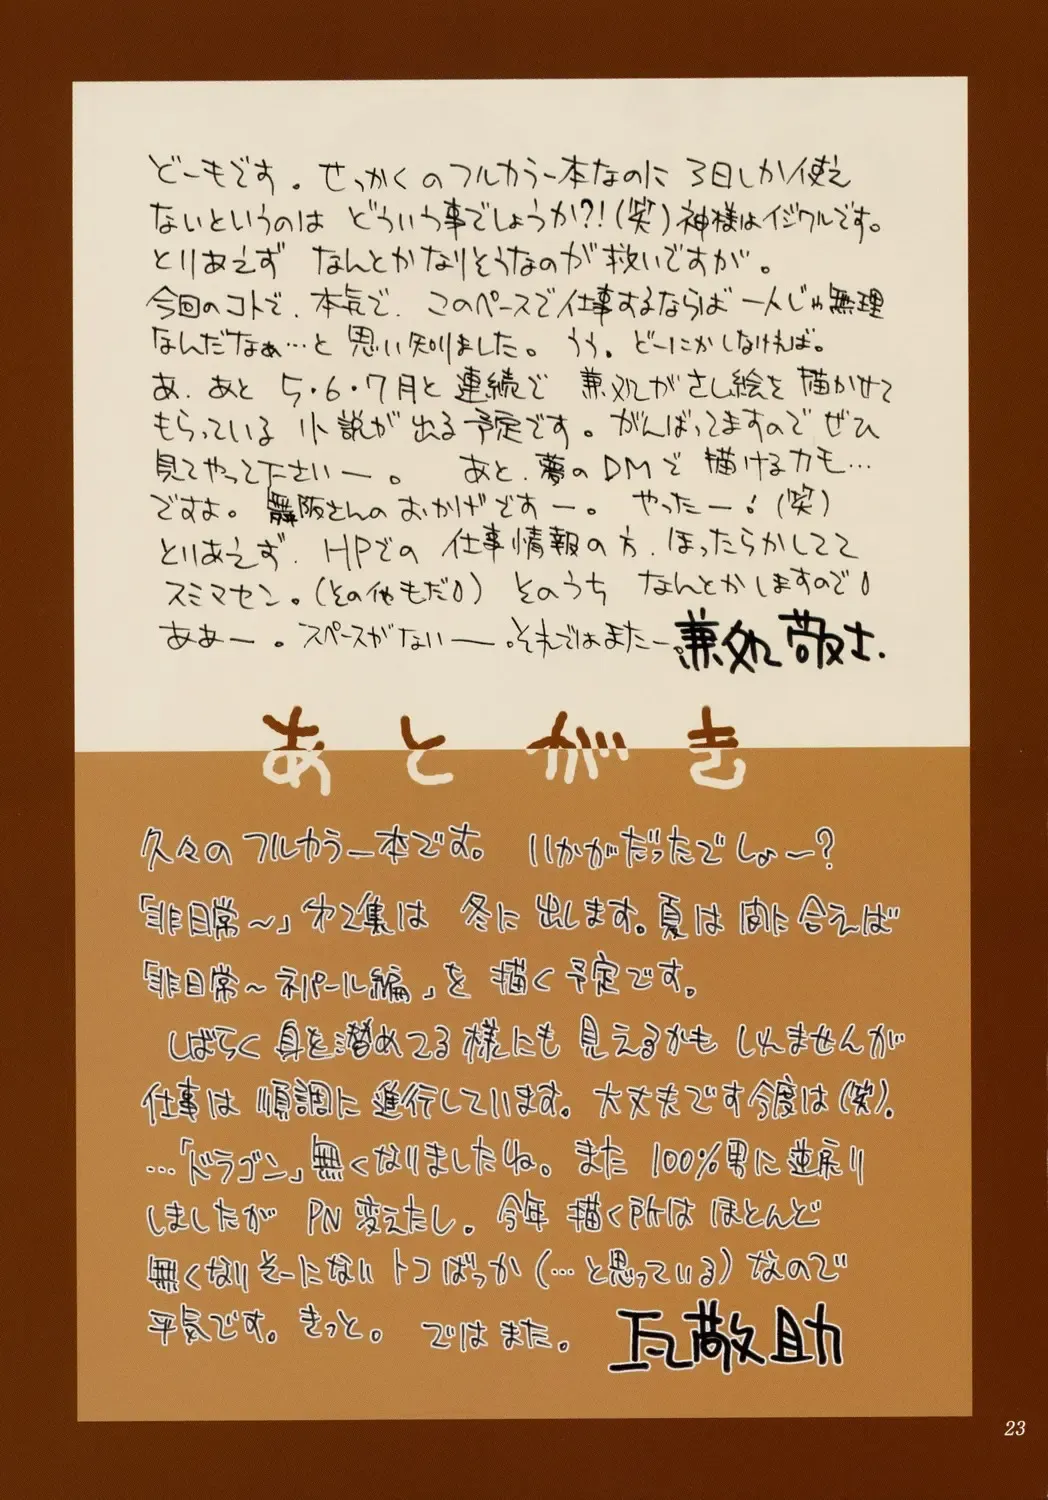 どーもです。せっかくのフルカラー本なのに 3日しか使え
ないというのは どういう事でしょうか?!(笑)神様はイジワルです。
とりあえず なんとかなりそうなのが救いですが。
今回のコトで、本気で、このペースで仕事するならば 一人じゃ無理
なんだなぁ…と 思い知りました。うう。どーにかしなければ。
あ、あと 5・6・7月と 連続で 兼処がさし絵を 描かせて
もらっている 小説が 出る予定です。がんばってますので ぜひ
見てやって下さいー。 あと、夢のDMで 描けるカモ…
ですよ。舞阪さんのおかげですー。 やったー!(笑)
とりあえず、HPでの 仕事情報の方、ほったらかしてて
スミマセン。(その他もだ) そのうち なんとかしますので
ああー。スペースがないー。それではまたー。兼処敬士.
あとがき
久々のフルカラー本です。 いかがだったでしょ〜?
「非日常〜」第2集は 冬に 出します。夏は 間に合えば
「非日常〜ネパール編」を 描く予定です。
しばらく 身を潜めてる様にも 見えるかも しれませんが
仕事は 順調に 進行しています。大丈夫です今度は(笑)。
…「ドラゴン」無くなりましたね。また 100%男に逆戻り
しましたが PN変えたし。今年 描く所は ほとんど
無くなりそーにない トコばっか(…と思っている)なので
平気です。きっと。 ではまた。 瓦敬助
23